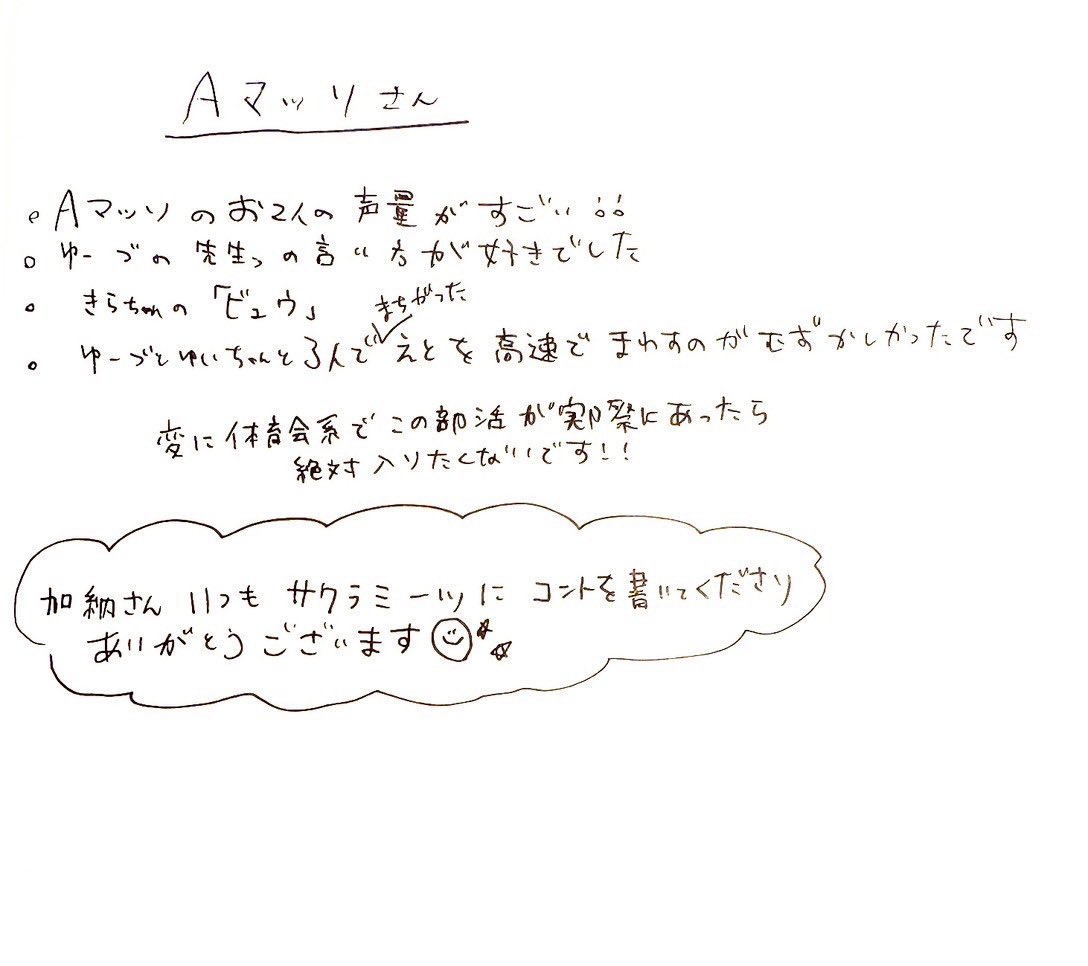 Aマッソさん
Aマッソのお2人の声量がすごい!!
ゆーづの先生っの言い方が好きでした
きらちゃんの「ビュウ」
まちがった
ゆーづとゆいちゃんと3人でえとを高速でまわすのがむずかしかったです
変に体育会系でこの部活が実際にあったら
絶対入りたくないです!!
加納さんいつもサクラミーツにコントを書いてくださり
ありがとうございます